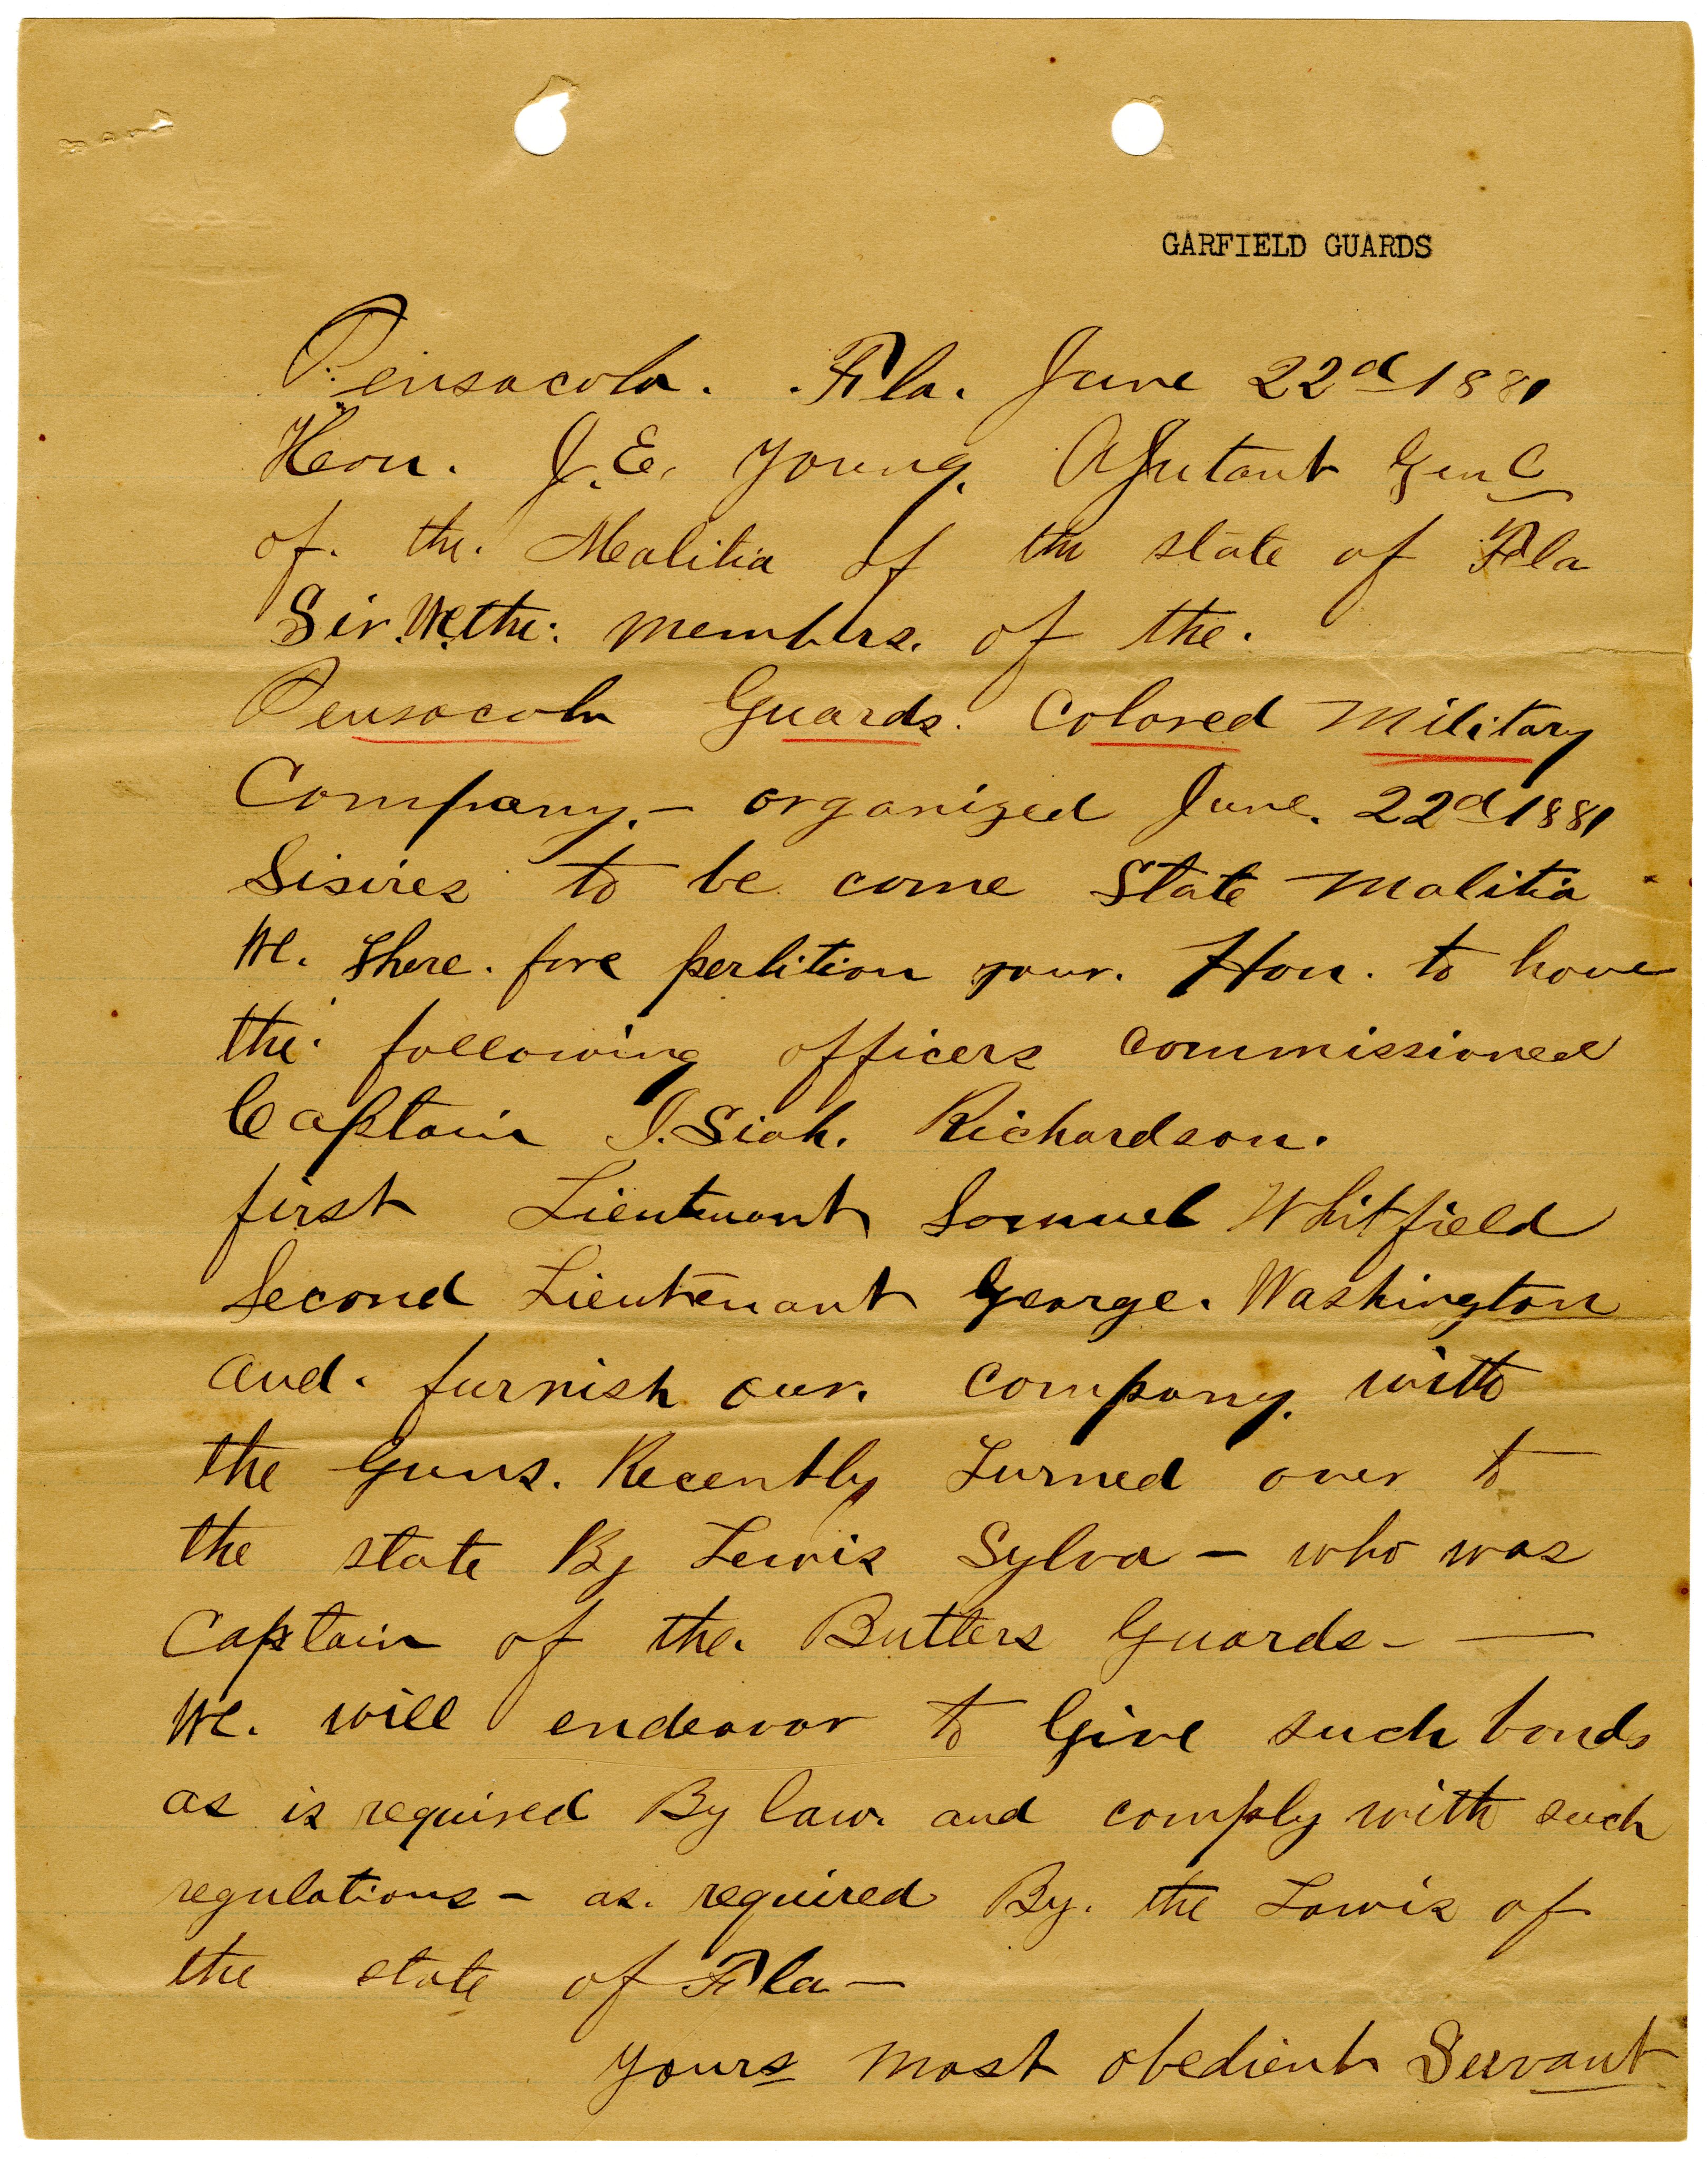 GARFIELD GUARDS
Pensacola. Fla. June 22d 1881
Hon. J. E. Young. Ajutant Genl
of. the. Malitia of the state of Fla
Sir. We the: members. of the.
Pensacola Guards. Colored Military
Company. - organized June. 22d 1881
Disires to be come State Malitia
We. there. fore pertition your. Hon. to have
the. following officers commissioned
Captain I. Siah. Richardson.
first Lieutenant Samuel Whitfield
Second Lieutenant George. Washington
and. furnish our. company. with
the Guns. Recently turned over to
the state By Lewis Sylva - who was
Captain of the. Butlers Guards- —
We. will endeavor to Give such bonds
as is required By law. and comply with such
regulations - as. required By. the Lawis of
the state of Fla —
yours most obedient Servant